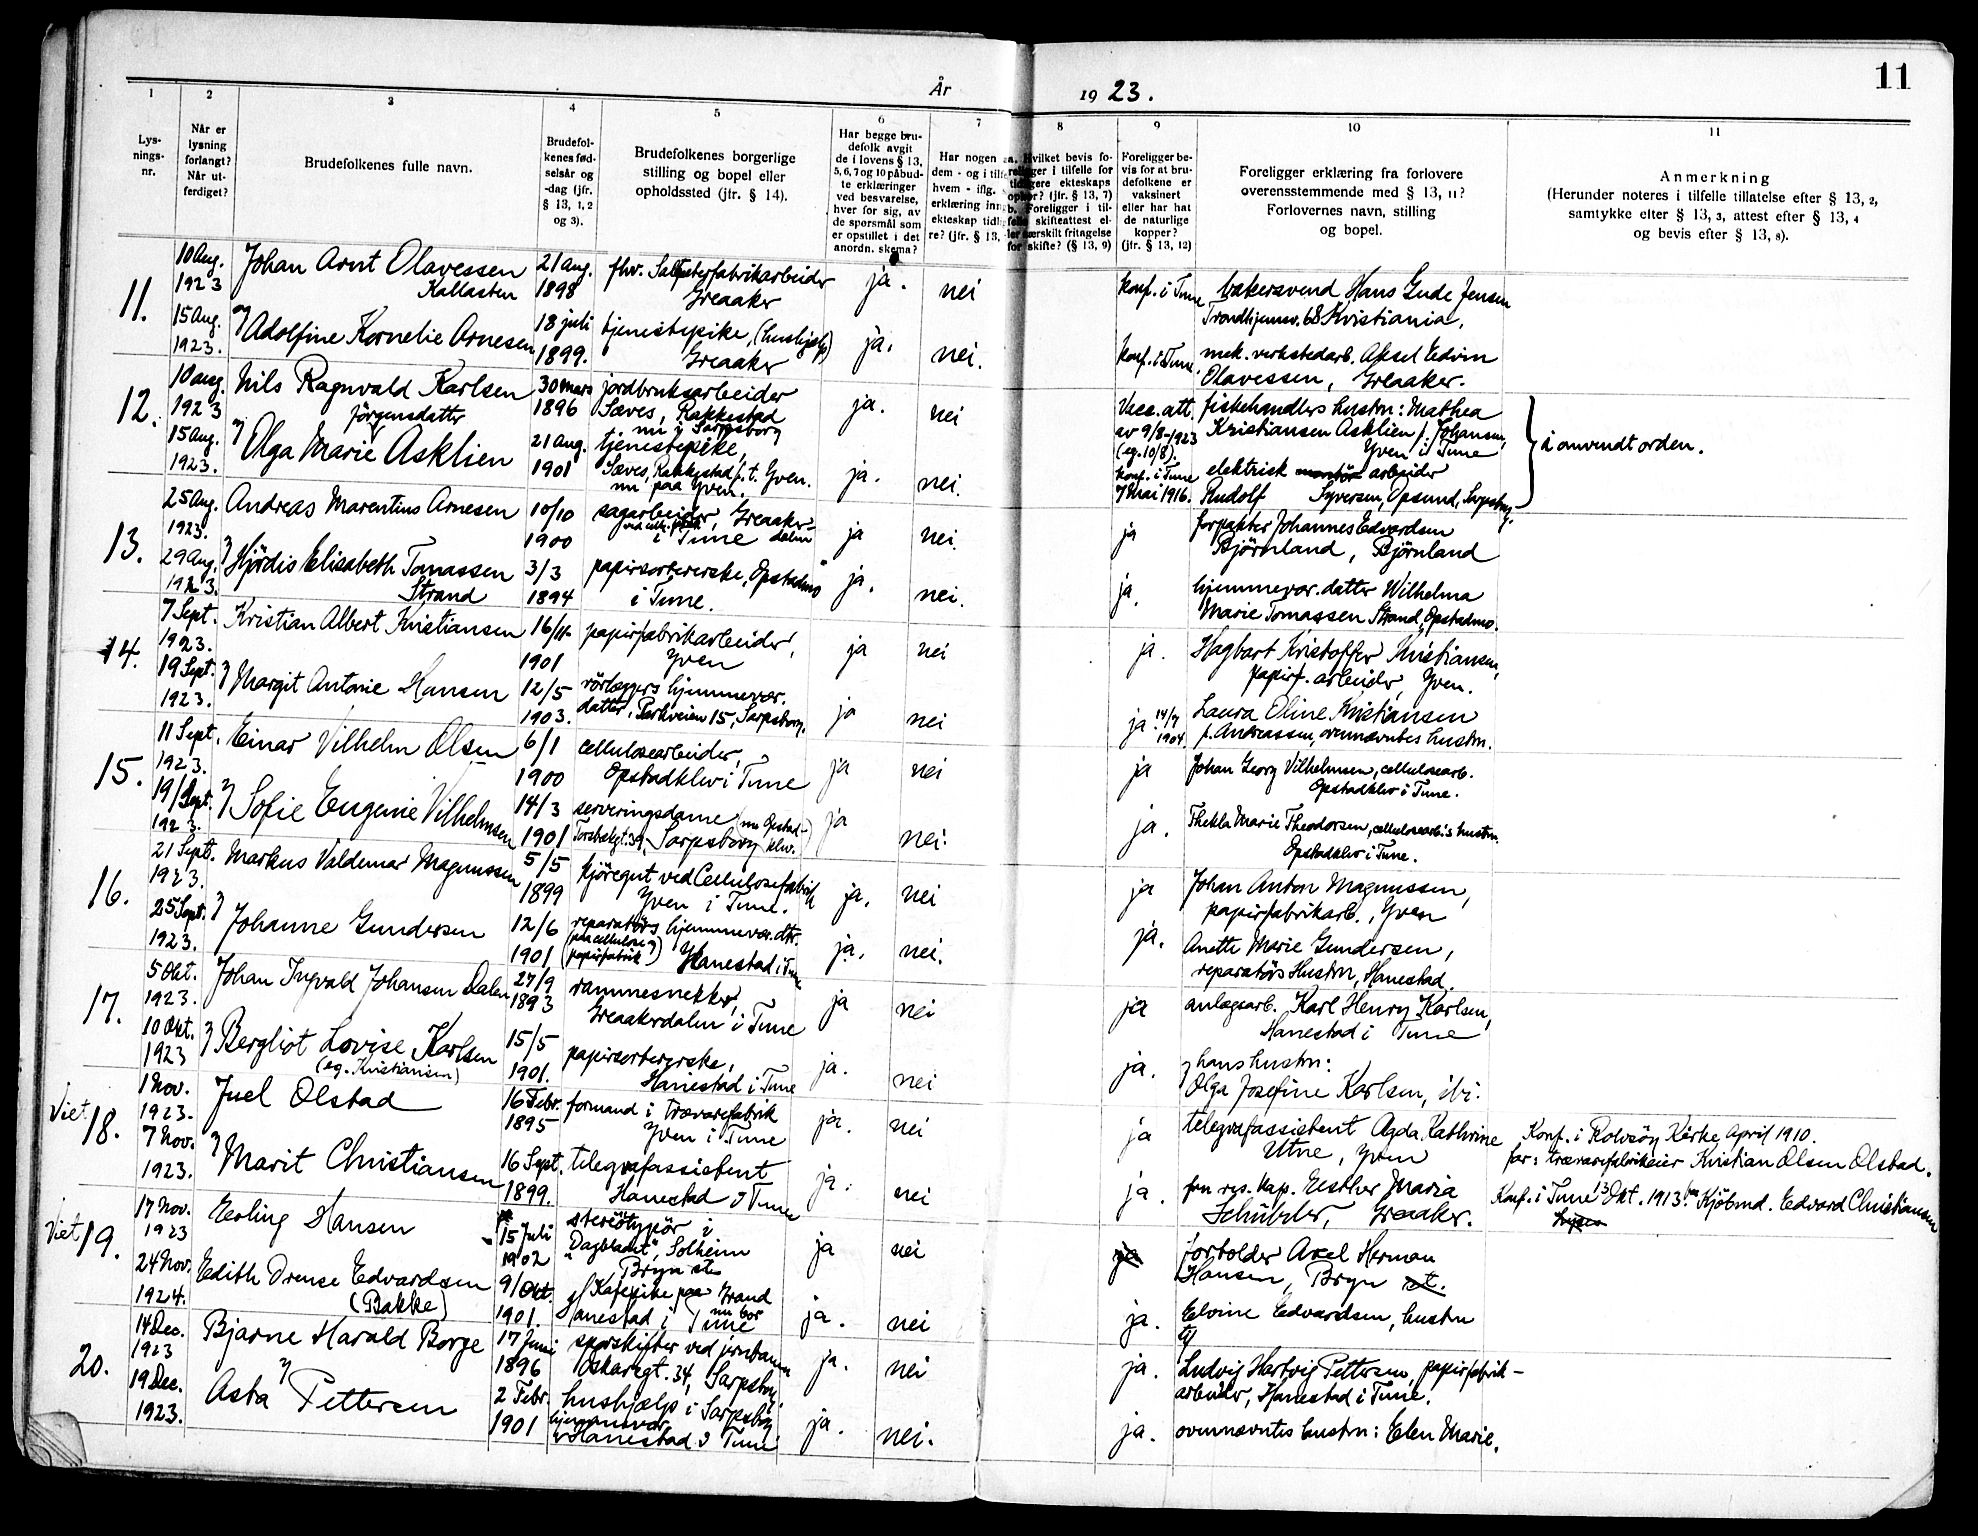 11
År
19 23.
1
2
3
4
5
6
7
8
9
10
11
Lys-
nings-
nr.
Når er
lysning
forlangt?
Når ut-
ferdiget?
Brudefolkenes fulle navn.
Brudefol-
kenes fød-
selsår og
-dag (jfr.
§ 13, 1, 2
og 3).
Brudefolkenes borgerlige
stilling og bopel eller
opholdssted (jfr. § 14).
Har begge bru-
defolk avgit
de i lovens § 13,
5, 6, 7 og 10 påbud-
te erklæringer
ved besvarelse,
hver for sig, av
de spørsmål som
er opstillet i det
anordn. skema?
Har nogen
dem - og i
hvem - iflg.
erklæring
ekteskap
re? (jfr. § 13,
a. Hvilket bevis fo-
religger i tilfelle for
tidligere ekteskaps
ophør? (jfr. § 13, 7)
b. Foreligger i til-
felle skifteattest el-
ler særskilt fritagelse
for skifte? (§ 13, 9)
Foreligger be-
vis for at bru-
defolkene er
vaksinert
eller har hat
de naturlige
kopper?
(jfr. § 13, 12)
Foreligger erklæring fra forlovere
overensstemmende med § 13, 11?
Forlovernes navn, stilling
og bopel.
Anmerkning
(Herunder noteres i tilfelle tillatelse efter § 13, 2,
samtykke efter § 13, 3, attest efter § 13, 4
og bevis efter § 13, 8).
11.
10 Aug.
1923
15 Aug.
1923.
Johan Arnt Olavessen
Kallasten
og Adolfine Kornelie Arnesen
21 Aug.
1898
18 juli
1899.
fhv. Salpeterfabrikarbeider
Greaaker
tjenestepike, (hushjelp)
Greaaker
ja.
ja.
nei
nei.
Konf. i Tune
Konf. i Tune.
bakersvend Hans Gude Jensen
Trondhjemsv. 68 Kristiania.
mek. verkstedarb. Aksel Edvin
Olavessen, Greaaker.
12.
10 aug.
1923
15 Aug.
1923.
Nils Ragnvald Karlsen
Jörgensdatter
og Olga Marie Asklien
30 mars
1896
21 Aug.
1901
jordbruksarbeider
Sæves, Rakkestad
nu i Sarpsborg
tjenestepike,
Sæves, Rakkestad p.t. Yven.
nu paa Yven.
ja.
ja.
nei
nei.
Vacc. att.
av 9/8-1923
(eg. 10/8).
Konf. i Tune
7 Mai 1916.
fiskehandlers hustru: Mathea
Kristiansen Asklien f. Johansen,
Yven i Tune
elektrisk arbeider
Rudolf Syversen, Opsund, Sarpsborg.
i omvendt orden.
13.
25 Aug.
1923.
29 Aug.
1923.
Andreas Marentius Arnesen
og Hjördis Elisabeth Tomassen
Strand
10/10
1900
3/3
1894
sagarbeider, Greaaker-
i Tune dalen
papirsortererske, Opstadmo
i Tune.
ja
ja.
nei.
nei.
ja
ja.
forpakter Johannes Edvardsen
Björnland, Björnland
hjemmevær. datter Wilhelma
Marie Tomassen Strand, Opstadmo.
14.
7 Sept.
1923.
19 Sept.
1923.
Kristian Albert Kristiansen
og Margit Antonie Hansen
16/11
1901
12/5
1903.
papirfabrikarbeider,
Yven
rörlæggers hjemmevær.
datter, Parkveien 15, Sarpsborg.
ja
ja
nei
nei
ja.
ja 14/7
1904
Hagbart Kristoffer Kristiansen,
papirf. arbeider, Yven.
Laura Oline Kristiansen
f. Andreassen, ovennævntes hustru.
15.
11 Sept.
1923.
19 Sept.
1923.
Einar Vilhelm Olsen
og Sofie Eugenie Vilhelmsen
6/1
1900
14/3
1901
cellulosearbeider,
Opstadklev i Tune
serveringsdame (nu Opstad-
Torsbekgt. 39, Sarpsborg klev.)
ja
ja
nei
nei.
ja
ja.
Johan Georg Vilhelmsen, cellulosearb.
Opstadklev i Tune.
Thekla Marie Theodorsen, cellulosearb.s hustru
Opstadklev i Tune.
16.
21 Sept.
1923.
25 Sept.
1923.
Markus Valdemar Magnussen
og Johanne Gundersen
5/5
1899
12/6
1901
kjöregut ved Cellulosefabrik
Yven i Tune.
reparatörs hjemmevær. dtr.
(paa cellulose og
papirfabrik) Hanestad i Tune
ja.
ja.
nei
nei.
ja
ja.
Johan Anton Magnussen,
papirfabrikarb., Yven
Anette Marie Gundersen,
reparatörs Hustru, Hanestad.
17.
5 Okt.
1923.
10 Okt.
1923
Johan Ingvald Johansen Dalen
og Bergliot Lovise Karlsen
(eg. Kristiansen)
27/9
1893
15/5
1901.
rammesnekker,
Greaakerdalen i Tune
papirsorterske,
Hanestad i Tune
ja
ja.
nei
nei
ja
ja.
anlægsarb. Karl Henry Karlsen,
Hanestad i Tune
og hans hustru:
Olga Josefine Karlsen, ibi.
Viet
18.
1 Nov.
1923.
7 Nov.
1923.
Juel Olstad
og Marit Christiansen
16 Febr.
1895
16 Sept.
1899.
formand i trævarefabrik
Yven i Tune
telegrafassistent
Hanestad i Tune
ja.
ja.
nei
nei
ja
ja.
telegrafassistent Agda Kathrine
Utne, Yven
fru res. kap. Esther Maria
Schübeler, Greaaker.
Konf. i Rolvsöy Kirke, April 1910.
far: trævarefabrikeier Kristian Olsen Olstad.
Konf. i Tune 13 Okt. 1913. far Kjöbmd. Edvard Christiansen
Viet
19.
17 Nov.
1923
24 Nov.
1924.
Erling Hansen
Edith Drense Edvardsen
(Bakke)
15 Juli
1902
9/Okt.
1901.
stereotypör i
"Dagbladet", Solheim
Bryn st.
Kafepike paa Grand
nu bor
Hanestad i Tune
ja
ja.
nei
nei
ja
ja.
forvalter Axel Herman
Hansen, Bryn st.
Elvine Edvardsen, hustru
til
20.
14 Dec.
1923
19 Dec.
1923.
Bjarne Harald Borge
og
Asta Pettersen
17 Juni
1896
2 Febr.
1901
sporskifter ved jernbanen
Oskarsgt. 34, Sarpsborg.
hushjælp i Sarpsborg
hjemmevær.
Hanestad i Tune
ja.
ja.
nei
nei.
ja.
ja.
Ludvig Hartvig Pettersen, papirfabrik-
arbeider, Hanestad i Tune.
ovennævntes hustru: Elen Marie.